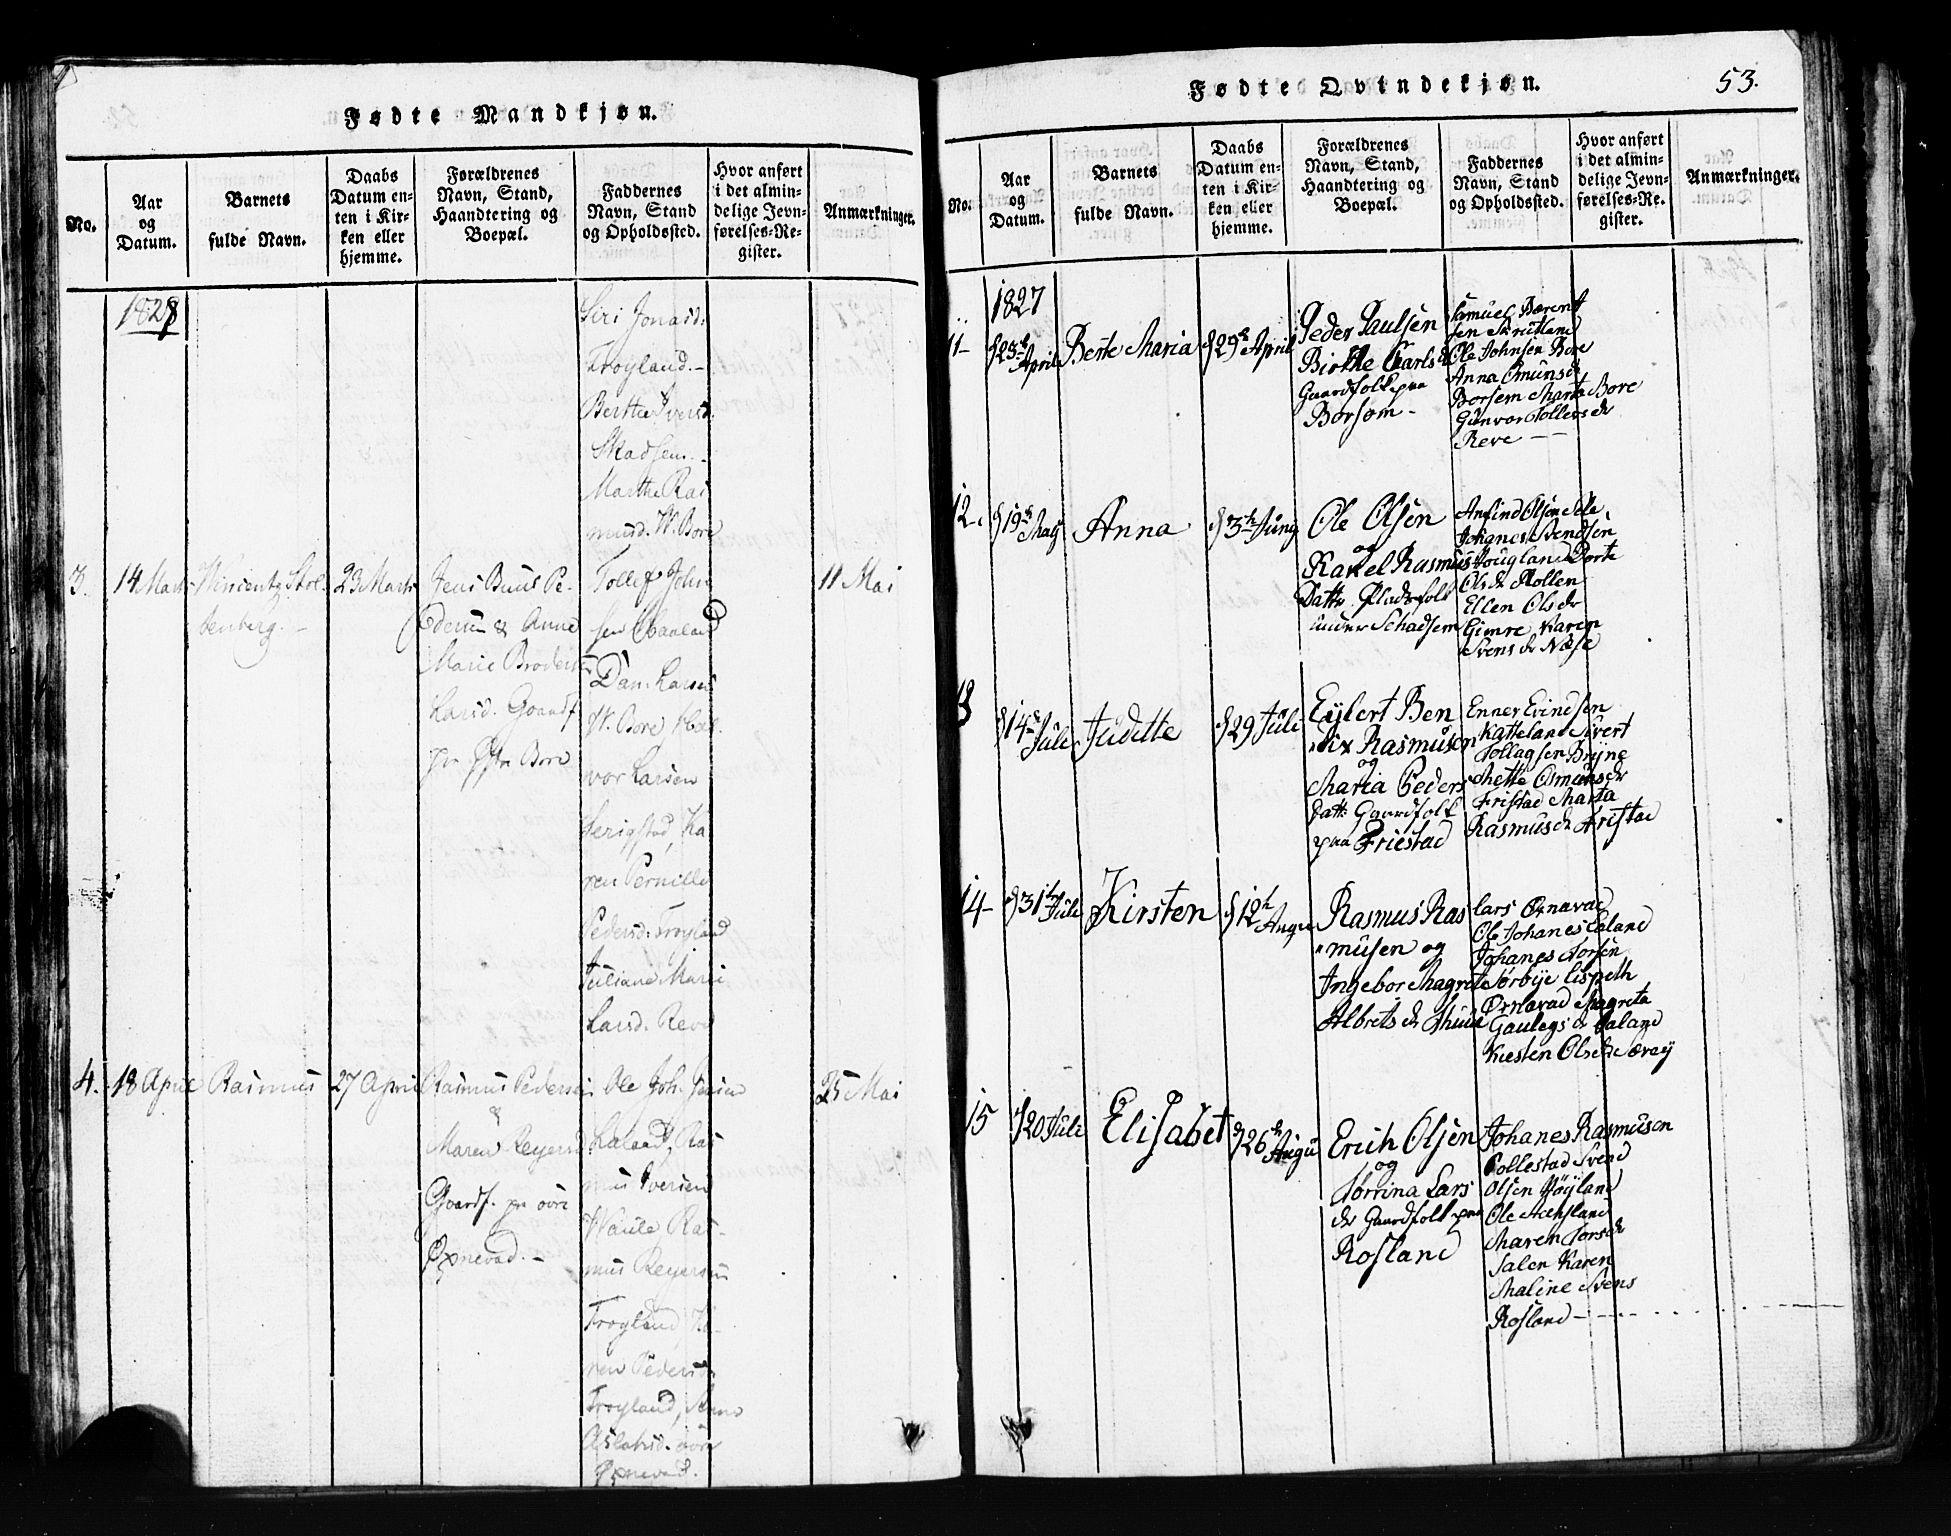 Fødte Mandkjøn.
No.
Aar
og
Datum.
Barnets
fulde Navn.
Daabs
Datum en-
ten i Kir-
ken eller
hjemme.
Forældrenes
Navn, Stand,
Haandtering og
Boepæl.
Faddernes
Navn, Stand
og Opholdssted.
Hvor anført
i det almin-
delige Jevn-
førelses-Re-
gister.
Anmærkninger.
1828
Siri Jonasd:
Trøyland.-
Berthe Iversd.
Skadsem.-
Marthe Ras
musd. W. Bore
3. 14 Marts
Vincentz Stol-
tenberg.-
23 Marts
Jens Buus Pe-
dersen & Anne
Marie Broders
Larsd. Gaardf.
Bore
Tollef John
sen
Dan. Larsen
W. Bore Hal
vor Larsen
Serigstad, Ka
ren Pernille
Pedersd: Trøyland
Juliane Marie
Larsd. Reve
11 Mai
4. 18 April
Rasmus
27 April
Rasmus Pedersen
&
Maren Reyersd
Gaardf. pa øvre
Øxnevad.-
Ole Joh. Jensen
Laland, Ras
mus Iversen
Waule Ras-
mus Reyersen
Trøyland, Ka-
ren Pedersd.
Trøyland, Anna
Aslaksd. øvre
Øxnevad.
25 Mai
Fødte Qvindekjøn.
53.
No.
Aar
og
Datum.
Barnets
fulde Navn.
Daabs
Datum en-
ten i Kir-
ken eller
hjemme.
Forældrenes
Navn, Stand,
Haandtering og
Boepæl.
Faddernes
Navn, Stand
og Opholdssted.
Hvor anført
i det almin-
delige Jevn-
førelses-Re-
gister.
Anmærkninger.
1827
11-
23 April
Berte Maria
29 April
Peder Paulsen
Birthe Carls dr
Gaardfolk paa
Borsom-
Samuel Bærent
sen Skrutland
Ole Johnsen Bore
Anna Omunsdr
Borsem Marta Bore
Gunvor Tollers dr
Reve --
12.
19 Maj
Anna
3 Juny
Ole Olsen
og
Rakel Rasmus
Datter Pladsfolk
under Schadsem
Anfind Olsen Sele
Johanes Svendsen
Hougland Dorte
Ols dr Mollen
Ellen Ols dr
Gimre Karen
Svens dr Næse
13
14 Juli
Judette
29 Juli
Eylert Ben
dix Rasmusen
og
Maria Peders
datt. Gaardfolk
paa Friestad
Enner Evindsen
Katteland Sivert
Tollagsen Bryne
Mette Omunsdr
Fristad Marta
Rasmusdr Fristad
14-
31 Juli
Kirsten
12 Augu
Rasmus Ras
musen og
Ingebor Magrete
Albrets dr
Lars Øxnavad
Ole Johanes Laland
Johanes Torsen
Sørbye Lispeth
Øxnavad Magreta
Gaulegs dr Laland
Kiesten Olsdr
15
20 Juli
Elisabet
26 Augu
Erich Olsen
og
Torrina Lars
dr Gaardfolk paa
Rosland
Johanes Rasmusen
Pollestad Svend
Olsen Høyland
Ole
Maren Torsdr
Salen Karen
Maline Svens
Rosland